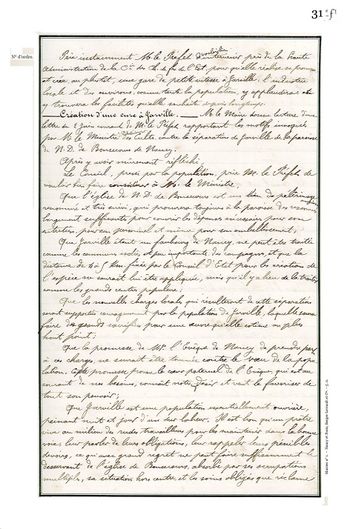 31
N° d'ordre.
Prie instamment M. le Préfet de vouloir bien intervenir près de la haute
administration de la Cie des Ch. de fer de l'Est, pour qu'elle
et crée au plustôt, une gare de petite vitesse à Jarville; l'industrie
locale et des environs comme toute la population, y applaudirait et
y trouvera les facilités qu'elle souhaite depuis longtemps.
Création d'une cure à Jarville. M. le Maire donne lecture d'une
lettre du 8 juin courant de M. le Préfet rapportant les motifs invoqués
par M. le Ministre des cultes contre la séparation de Jarville de la paroisse
de N. D. de Bonsecours de Nancy.
Après y avoir mûrement réfléchi,
Le Conseil, pressé par la population, prie M. le Préfet de
vouloir bien faire considérer à M. le Ministre;
Que l'église de N. D. de Bonsecours est un lieu de pèlerinage
renommé et très suivi, qui procurera toujours à la paroisse des revenus
largement suffisants pour couvrir les dépenses nécessaires pour son
entretien, pour son personnel et même pour son embellissement;
Que Jarville étant un faubourg de Nancy, ne peut être traité
comme les communes isolées et peu importantes des campagnes, et que la
distance de 4 à 5 km fixée par le Conseil d'Etat pour les création de
l'espèce ne saurait lui être appliquée, mais qu'il y a lieu de la traiter
comme les grands centres populeux;
Que les nouvelles charges locales qui résulteront de cette séparation
sont supportées courageusement par la population de Jarville, laquelle consent à
faire des grands sacrifices pour une œuvre qu'elle estime au plus
haut point;
Que la promesse de Mgr. l'Evêque de Nancy de prendre part
à ces charges, ne saurait être tournée contre le vœu de la popu-
lation. Cette promesse prouve le cœur paternel de l'Evêque qui est au
courant de nos besoins, connait notre désir et veut le favoriser de
tout son pouvoir;
Que Jarville est une population essentiellement ouvrière,
peinant nuit et jour d'un dur labeur. Il est bon qu'un prêtre
vive au milieu des rudes travailleurs pour les maintenir dans la bonne
voie; leur parler de leurs obligations, leur rappeler leurs pénibles
devoirs, ce qu'avec grand regret ne peut faire suffisamment le
desservant de l'église de Bonsecours, absorbé par ses occupations
multiples, sa situation hors centre et les soins obligés que réclame